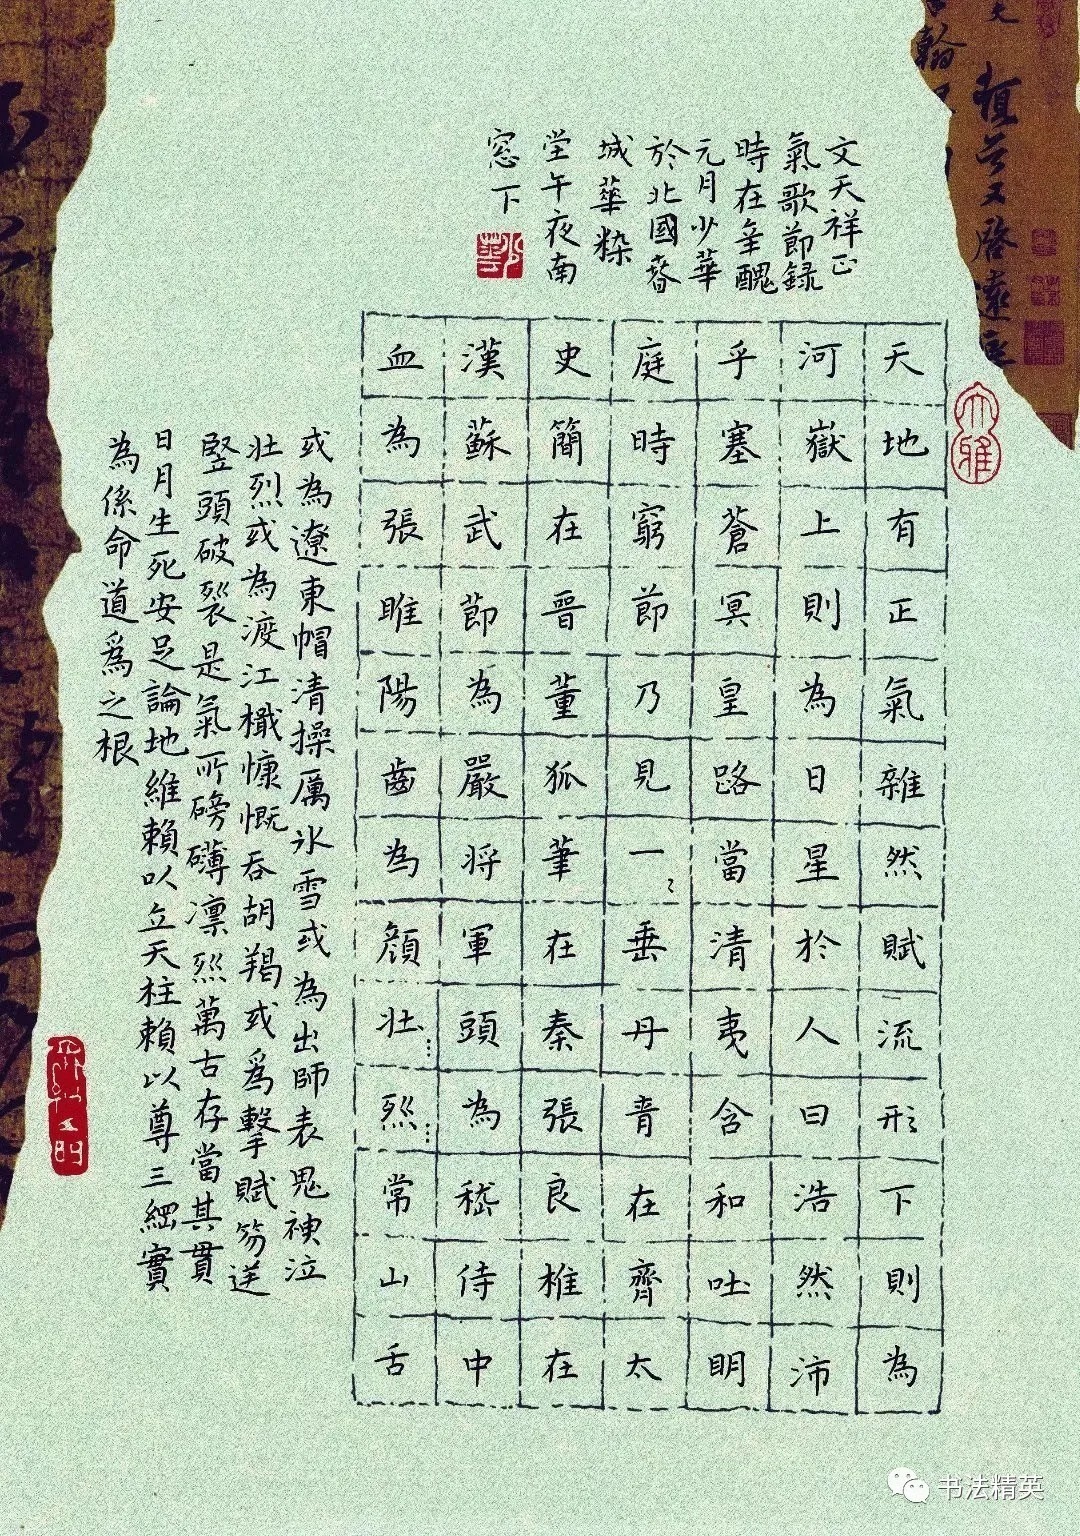 天地有正氣雜然賦流形下則為
河嶽上則為日星於人曰浩然沛
乎塞蒼冥皇路當清夷含和吐明
庭時窮節乃見一〻垂丹青在齊太
史簡在晉董狐筆在秦張良椎在
漢蘇武節為嚴将軍頭為嵇侍中
血為張睢陽齒為顏壯烈常山舌
或為遼東帽清操厲冰雪或為出師表鬼神泣
壯烈或為渡江檝慷慨吞胡羯或為擊賊笏逆
豎頭破裂是氣所磅礴凛烈萬古存當其貫
日月生死安足論地維賴以立天柱賴以尊三綱實
為係命道為之根
文天祥正
氣歌節録
時在辛醜
元月少華
於北國春
城華
堂午夜南
窓下
少華
大雅
书法精英